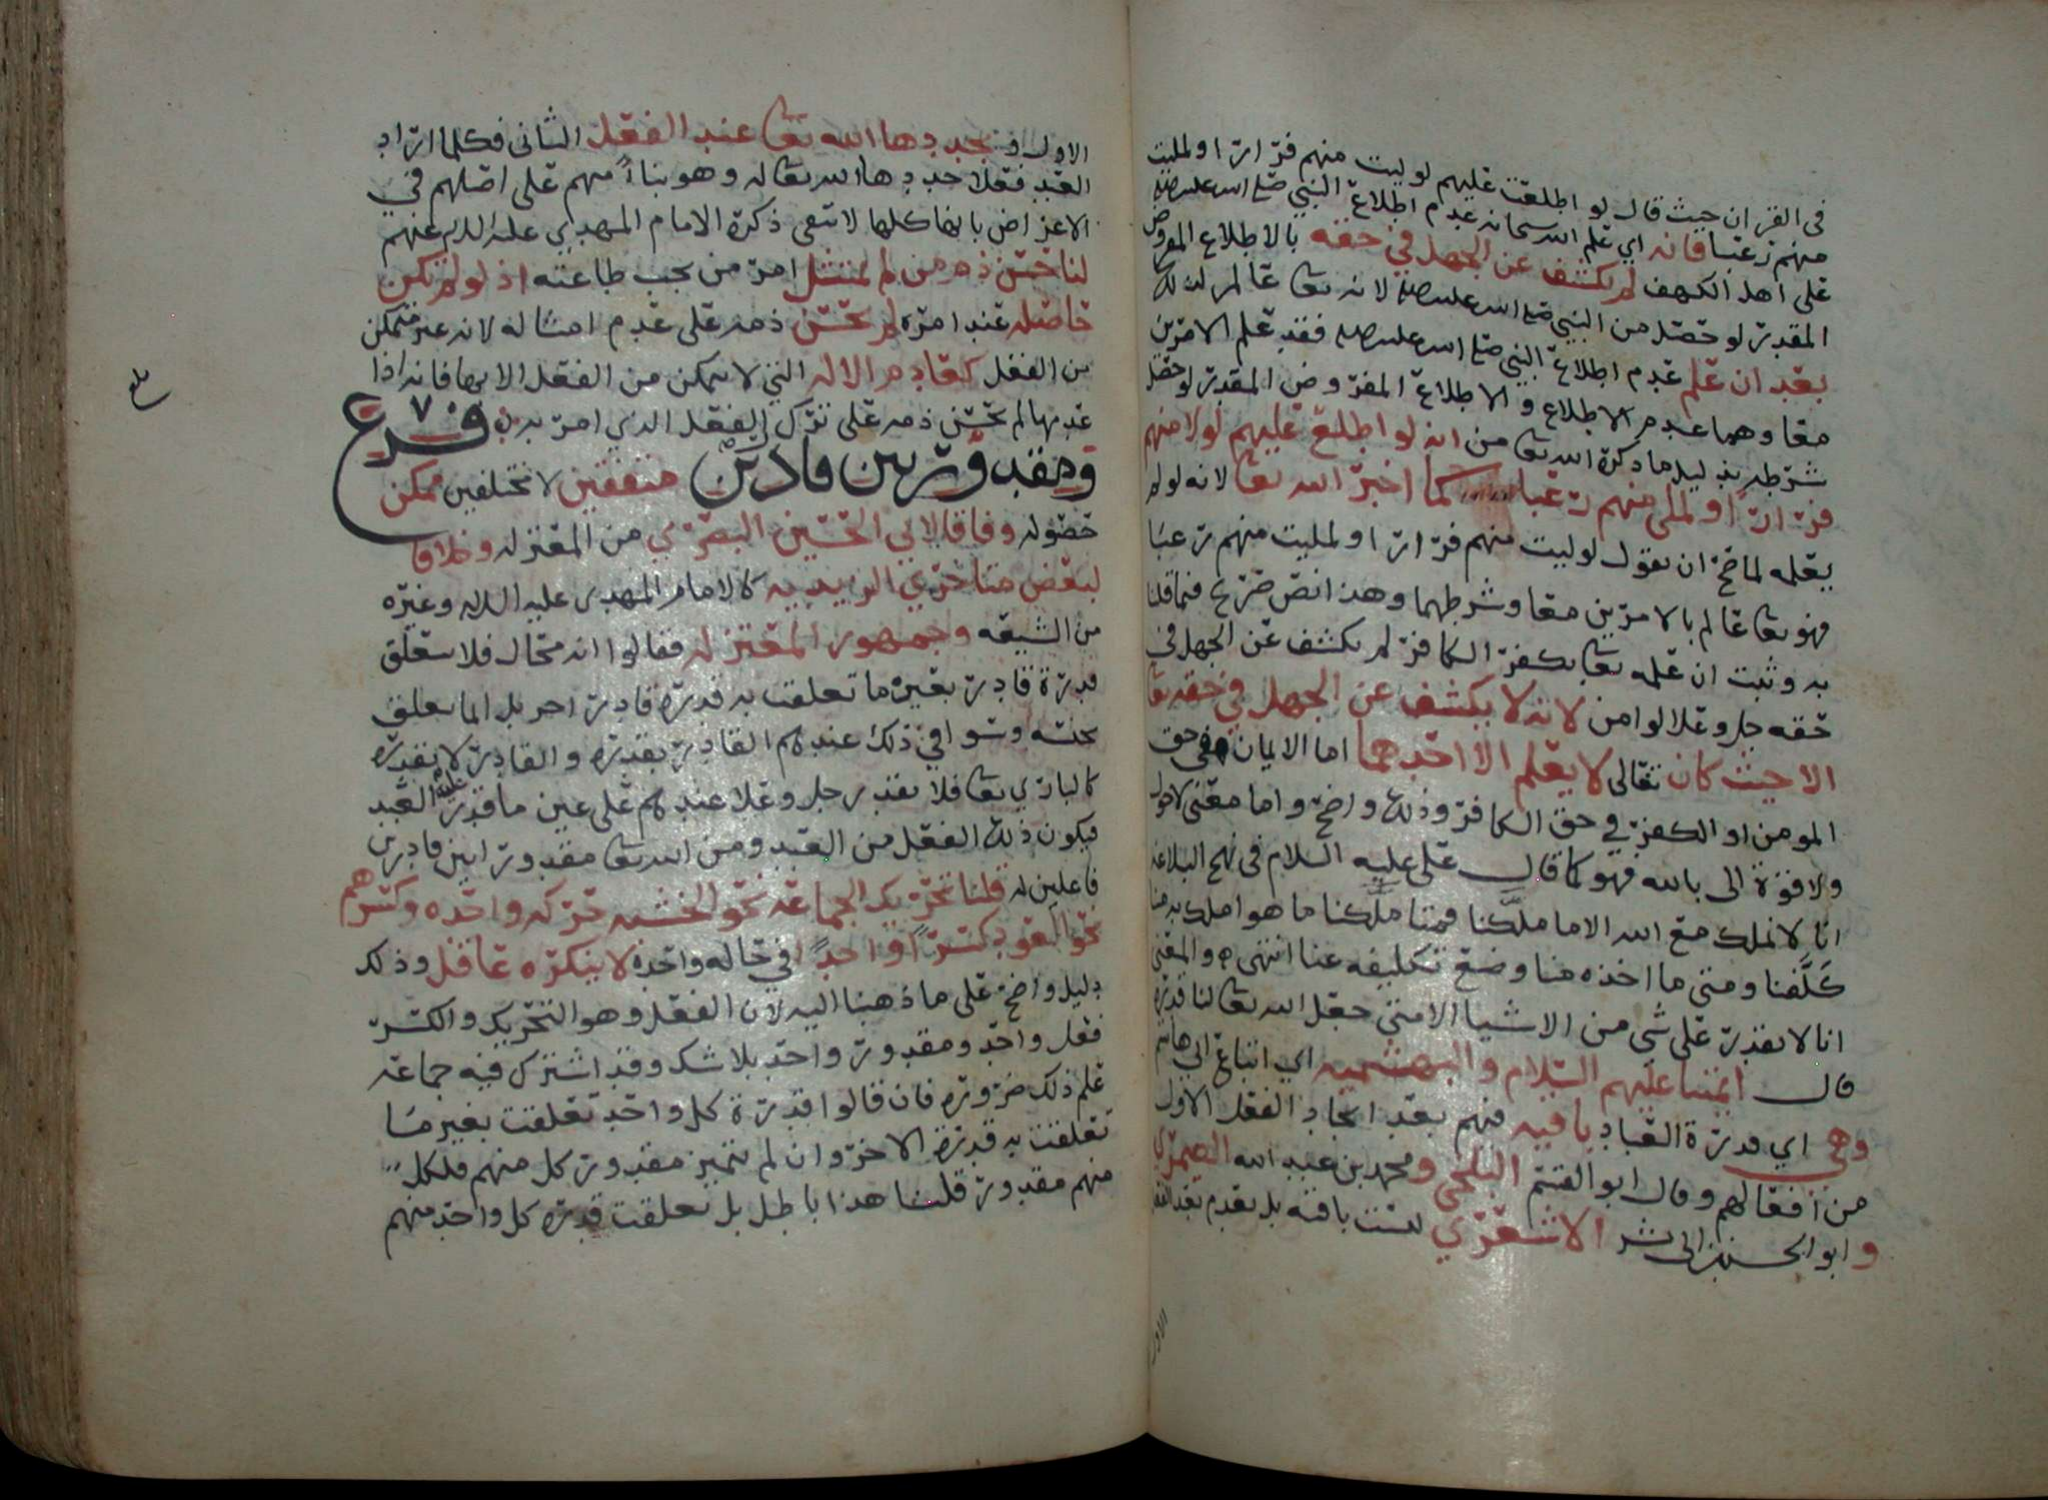 في القران حيث قال لو اطلعت عليهم لوليت منهم فرارا ولمليت
منهم رعبا فانه اي علم الله سبحانه عدم اطلاع النبي صلى الله عليه
على اهل الكهف لم يكشف عن الجهل في حقه بالاطلاع المفروض
المقدر لو حصل من النبي صلى الله عليه لانه تعا عالم لذلك
بعد ان علم عدم اطلاع النبي صلى الله عليه فقد علم الامرين
معا وهما عدم الاطلاع والاطلاع المفروض المقدر لو حصل
شرطه بدليل ما ذكره الله تعا من انه لو اطلع عليهم لولا منهم
فرارا ولملي منهم رعبا كما اخبر الله تعا لانه لو لم
يعلمه لما صح ان يقول لوليت منهم فرارا ولمليت منهم رعبا
فهو تعا عالم بالامرين معا وشرطهما وهذا نص صريح فيما قلنا
به وثبت ان علمه تعا بكفر الكافر لم يكشف عن الجهل في
حقه جل وعلا لو امن لانه لا يكشف عن الجهل في حقه تعا
الا حيث كان تعالى لا يعلم الا احدهما اما الايمان في حق
المومن او الكفر في حق الكافر وذلك واضح واما معنى لا حول
ولا قوة الى بالله فهو كما قال على عليه السلام في نهج البلاغه
انا لا نملك مع الله الا ما ملكنا فمتا ملكنا ما هو املك به منا
كلفنا ومتى ما اخذه منا وضع تكليفه عنا انتهى والمعنى
انا لا نقدر على شي من الاشيا الا متى جعل الله تعا لنا قدره
قال ايمتنا عليهم السلام والبهشميه اي اتباع ابي هاشم
وهي اي قدرة العباد باقيه فيهم بعد ايجاد الفعل الاول
من افعالهم وقال ابو القسم البلخي ومحمد بن عبد الله الصيمري
وابو الحسن بن ابي بشر الاشعري ليست باقيه بل تعدم بعد الفعل
الاول
الاول ويجددها الله تعا عند الفعل الثاني فكلما اراد
العبد فعلا جددها الله تعا له وهو بناأ منهم على اصلهم في
الاعراض بانها كلها لا تبقى ذكره الامام المهدي عليه السلام عنهم
لنا حسن ذم من لم يمتثل امر من يجب طاعته اذ لو لم تكن
حاصله عند امره لم يحسن ذمه على عدم امتثاله لانه غير متمكن
من الفعل كعادم الاله التي لا يتمكن من الفعل الا بها فانه اذا
عدمها لم يحسن ذمه على ترك الفعل الذي امر به فرع
ومقدور بين قادرين متفقين لا مختلفين ممكن
حصوله وفاقا لابي الحسين البصري من المعتزله وخلافا
لبعض متاخري الزيديه كالامام المهدي عليه السلام وغيره
من الشيعه وجمهور المعتزله فقالوا انه محال فلا يتعلق
قدرة قادر بعين ما تعلقت به قدره قادر اخر بل انما يتعلق
بجنسه وسوا في ذلك عندهم القادر بقدره والقادر لا بقدره
كالباري تعا فلا يقدر جل وعلا عندهم على عين ما قدر عليه العبد
فيكون ذلك الفعل من العبد ومن الله تعا مقدورا بين قادرين
فاعلين له قلنا تحريك الجماعة نحو الخشبه حركه واحده وكسرهم
نحو العود كسرا واحدا في حاله واحدة لا ينكره عاقل وذلك
دليل واضح على ما ذهبنا اليه لان الفعل وهو التحريك والكسر
فعل واحد ومقدور واحد بلا شك وقد اشترك فيه جماعه
علم ذلك ضروره فان قالوا قدرة كل واحد تعلقت بغير ما
تعلقت به قدرة الاخر وان لم يتميز مقدور كل منهم فلكل
منهم مقدور قلنا هذا باطل بل تعلقت قدره كل واحد منهم